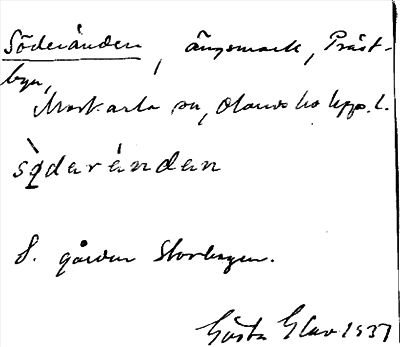 Söderånden, ängsmark, Präst-
byn,
Markarla sn, Olands hd Upps. l.
sǫ̀darándan
S. gården Storbyn.
Gösta Glav 1937